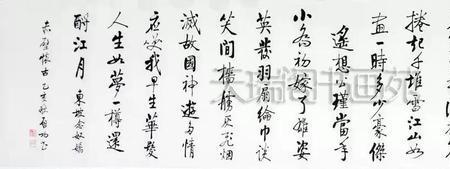 捲起千堆雪江山如
畫一時多少豪傑
遙想公瑾當年
小喬初嫁了雄姿
英發羽扇綸巾談
笑間檣艣灰飛烟
滅故國神遊多情
應笑我早生華髮
人生如夢一樽還
酹江月 東坡念奴嬌
赤壁懷古 乙亥秋 啓功